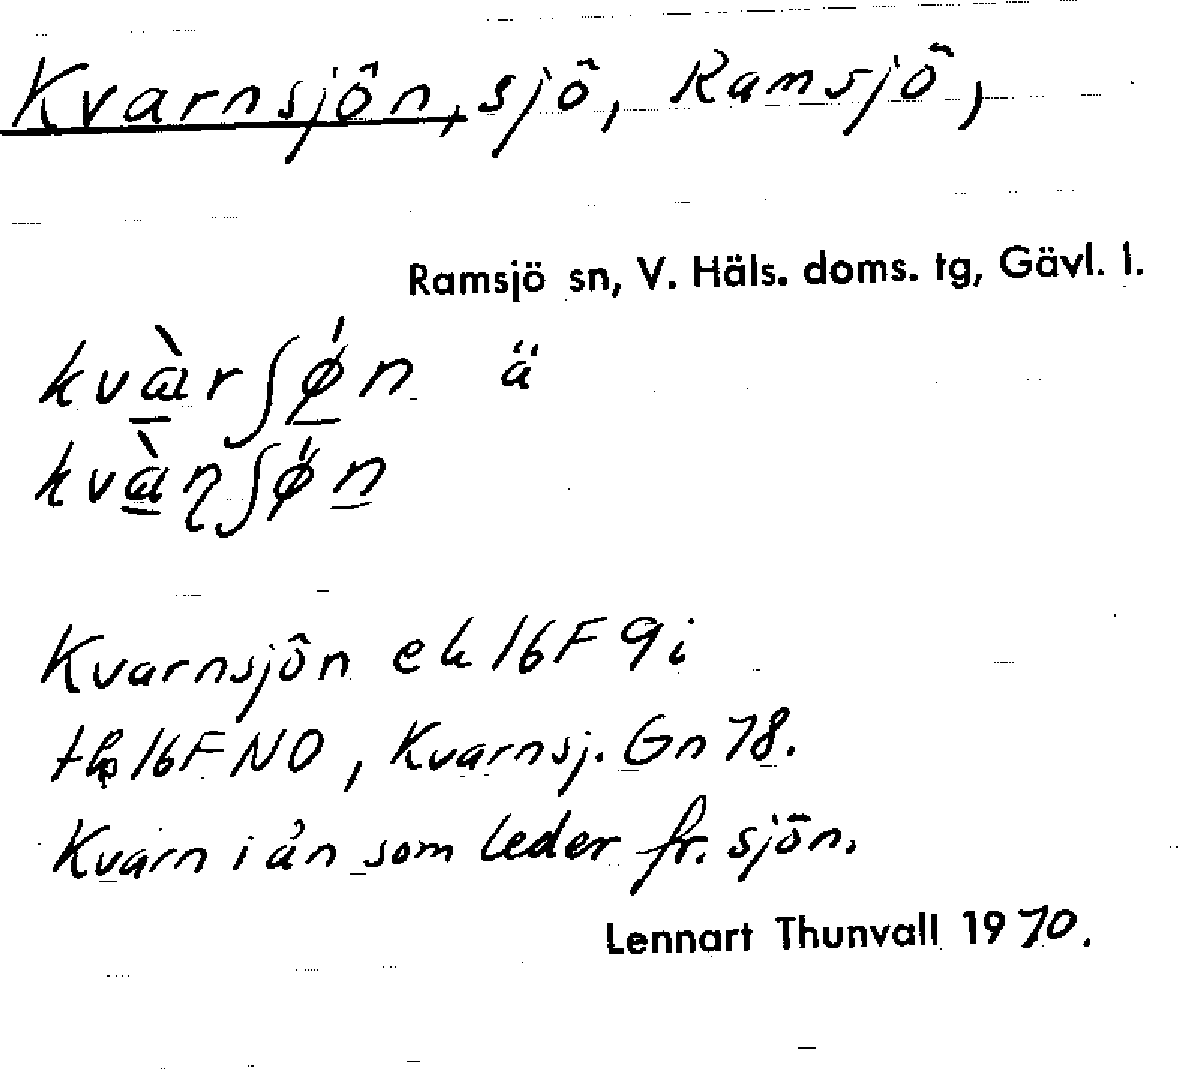 Kvarnsjön, sjö, Ramsjö,
Ramsjö sn, V. Häls. doms. tg, Gävl. l.
kvàrʃǿn ä
kvàɳʃøn
Kvarnsjön ek 16F 9i
tk 16F NO, Kvarnsj. Gn 78.
Kvarn i ån som leder fr. sjön.
Lennart Thunvall 1970.